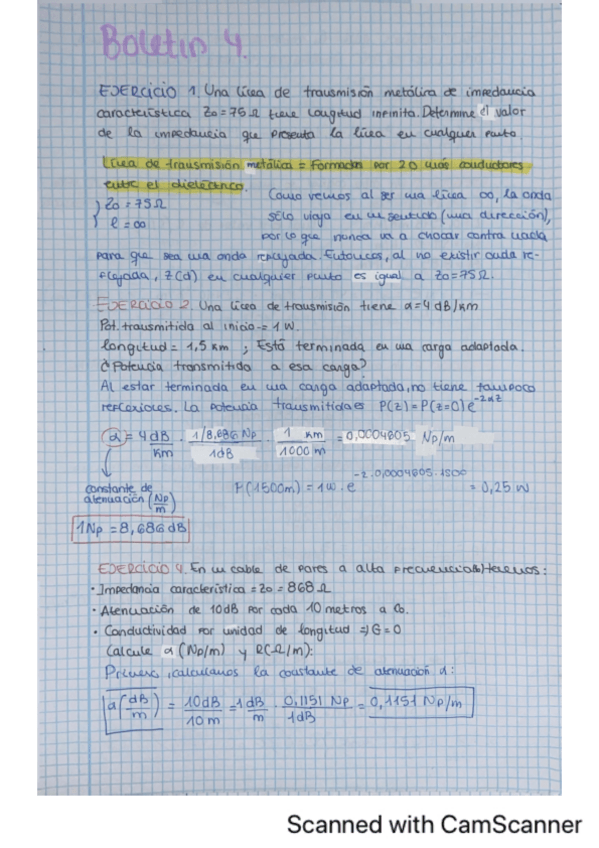 Boletin 4.
EJERCICIO 1. Una línea de transmisión metálica de impedancia
característica Zo=75 Ω tiene longitud infinita. Determine el valor
de la impedancia que presenta la línea en cualquier punto.
Línea de transmisión metálica = Formada por 2 o más conductores
entre el dieléctrico.
Zo = 75 Ω
l = ∞
Como vemos al ser una línea ∞, la onda
sólo viaja en un sentido (una dirección),
por lo que nunca va a chocar contra nada
para que sea una onda reflejada. Entonces, al no existir onda re-
flejada, Z(d) en cualquier punto es igual a Zo=75 Ω.
EJERCICIO 2. Una línea de transmisión tiene α=4 dB/km
Pot. transmitida al inicio = 1 W.
longitud = 1,5 km ; Está terminada en una carga adaptada.
¿Potencia transmitida a esa carga?
Al estar terminada en una carga adaptada, no tiene tampoco
reflexiones. La potencia transmitida es P(z) = P(z=0) e^-2αz
α = 4 dB/km · 1/8,686 Np/1dB · 1 km/1000 m = 0,0004605 Np/m
constante de
atenuación (Np/m)
P(1500m) = 1W · e^-2·0,0004605·1500 = 0,25 W
1Np = 8,686 dB
EJERCICIO 4. En un cable de pares a alta frecuencia tenemos:
· Impedancia característica = Zo = 868 Ω
· Atenuación de 10dB por cada 10 metros a
· Conductividad por unidad de longitud => G=0
Calcule α (Np/m) y R(Ω/m):
Primero, calculamos la constante de atenuación α:
α(dB/m) = 10dB/10m = 1 dB/m · 0,1151 Np/1dB = 0,1151 Np/m
Scanned with CamScanner